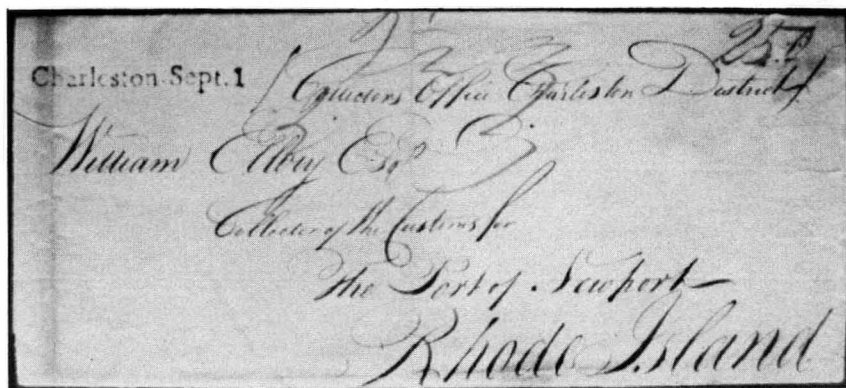 25.c
Charleston-Sept.1
(Collectors Office Charleston District)
William Ellery Esqr
Collector of the Customs for
the Port of Newport
Rhode Island